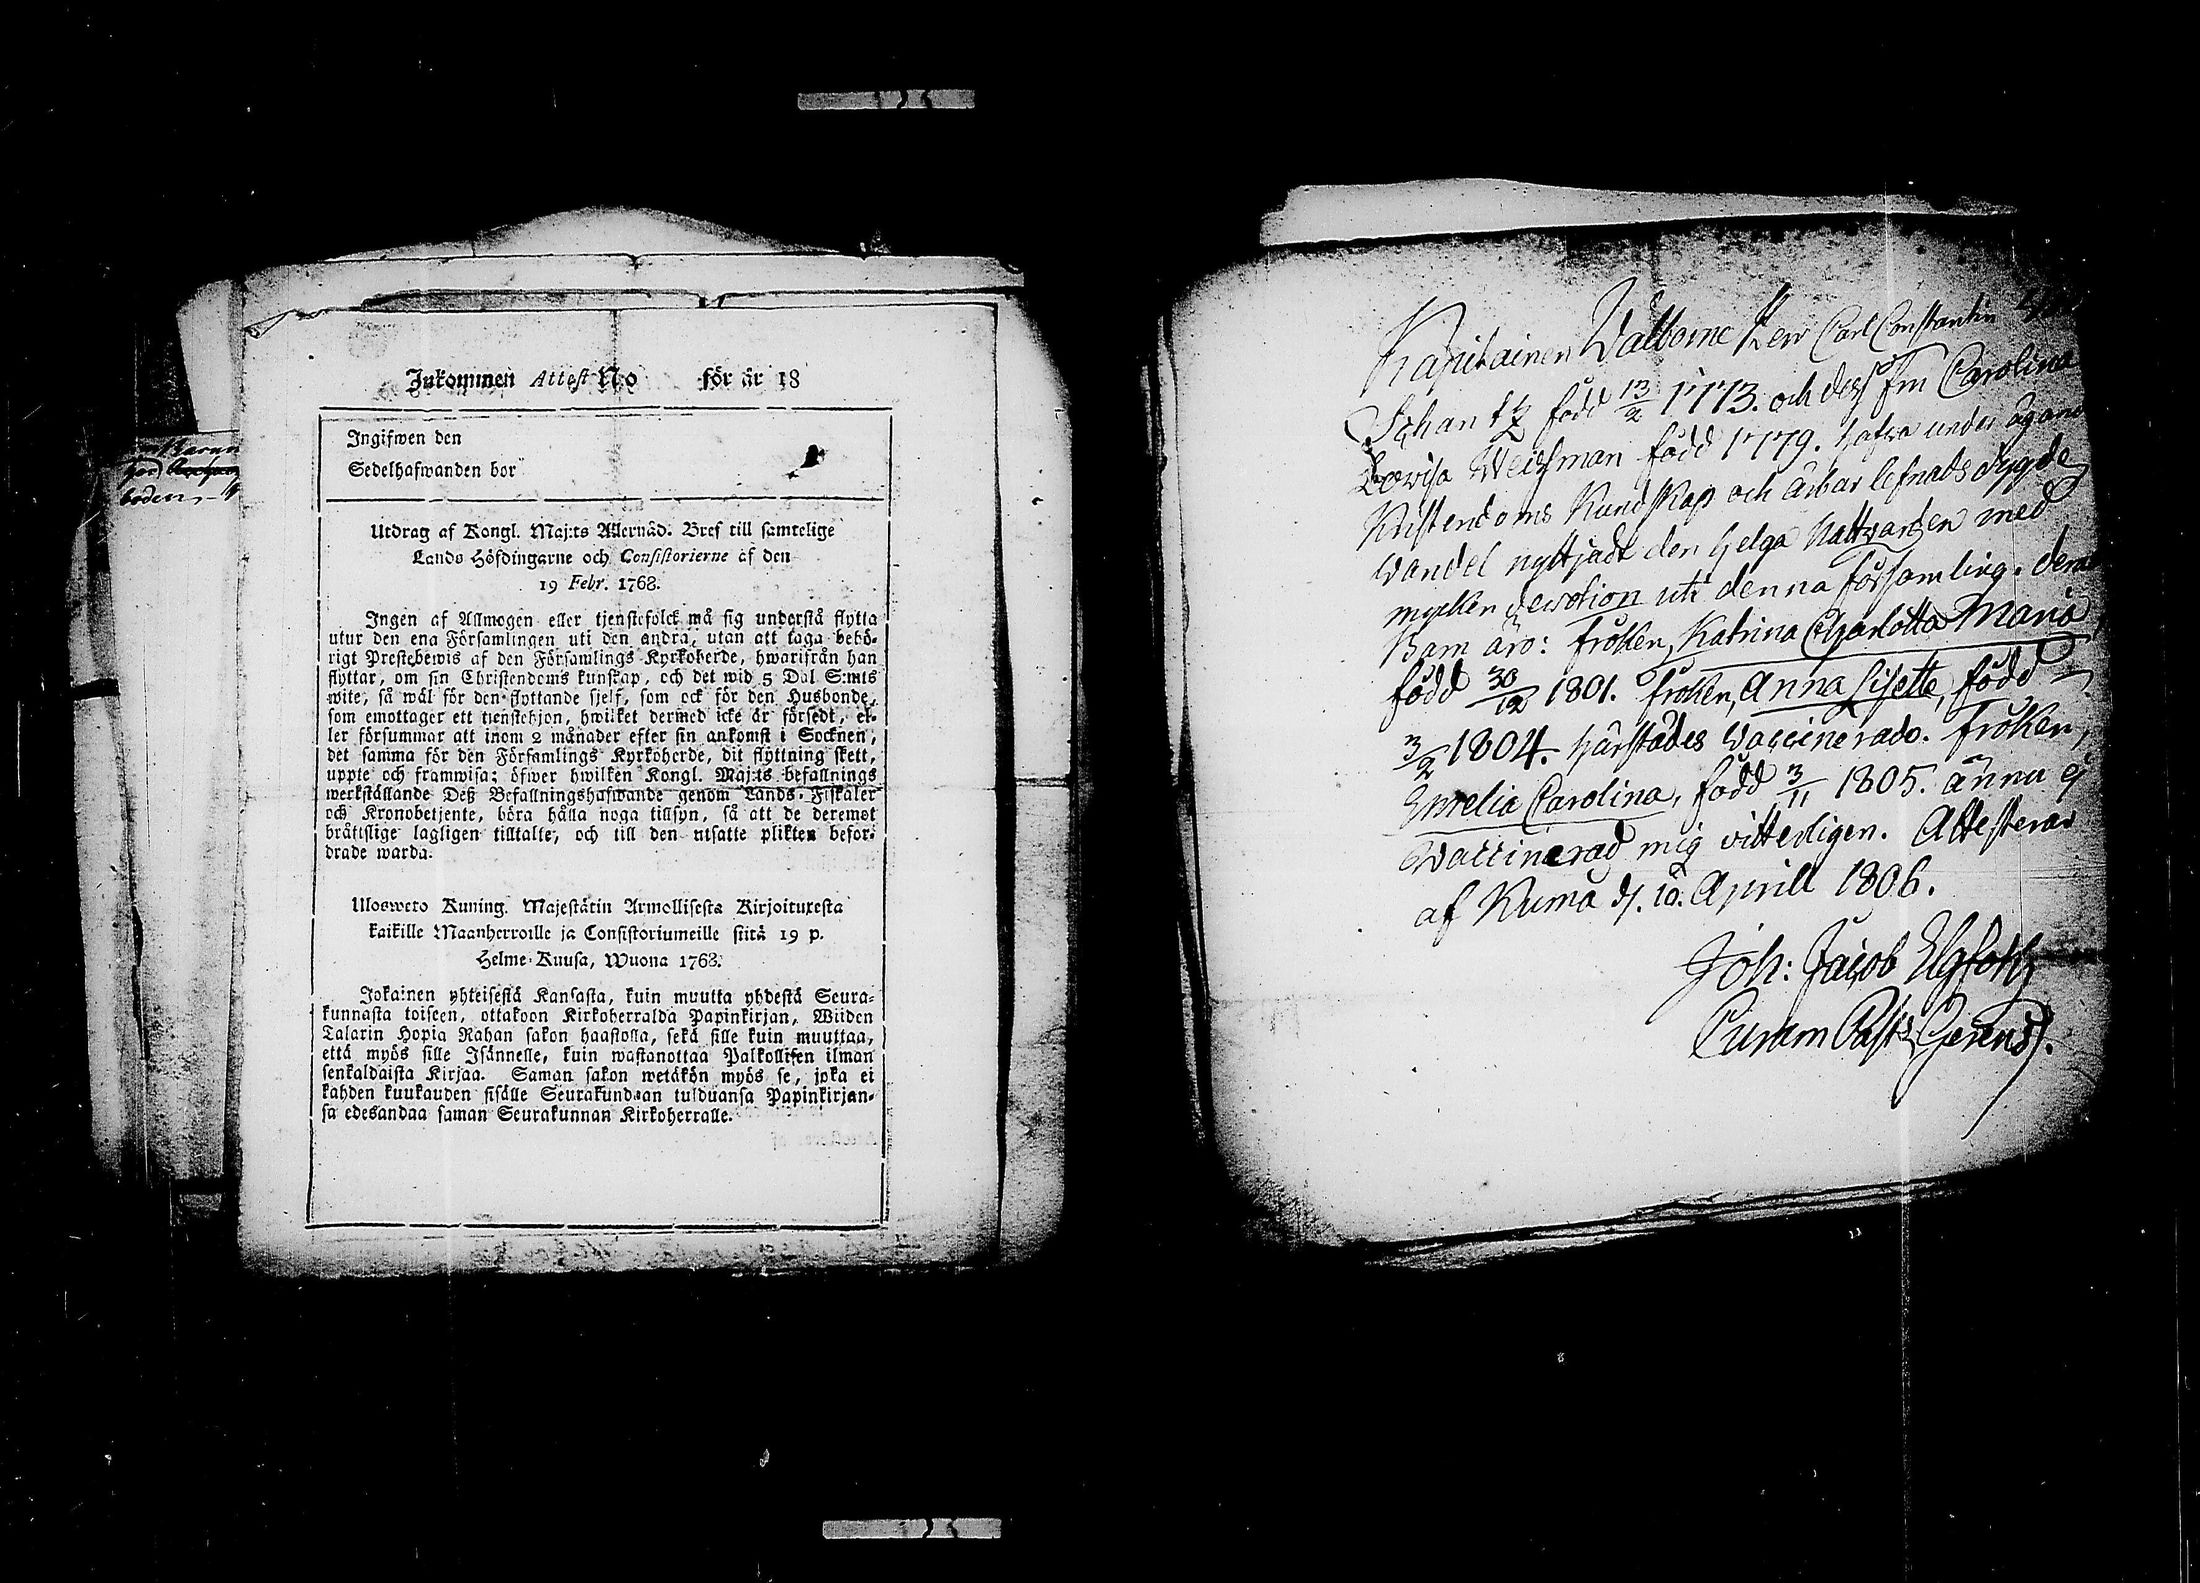 Inkommen Attest No för år 18
Ingifwen den
Sedelhafwanden bor
Utdrag af Kongl. Maj:ts Allernåd. Bref till samtelige
Lands Höfdingarne och Consistorierne af den
19 Febr. 1768.
Ingen af Allmogen eller tjenstefolck må sig understå flytta
utur den ena Församlingen uti den andra, utan att taga behö-
rigt Prestebewis af den Församlings Kyrkoherde, hwarifrån han
flyttar, om sin Christendoms kunskap, och det wid 5 Dal S:mts
wite, så wäl för den flyttande sjelf, som ock för den Husbonde,
som emottager ett tjenstehjon, hwilket dermed icke är försedt, el-
ler försummar att inom 2 månader efter sin ankomst i Socknen,
det samma för den Församlings Kyrkoherde, dit flyttning skett,
uppte och framwisa; öfwer hwilken Kongl. Maj:ts befallnings
werkställande Deß Befallningshafwande genom Lands-Fiskaler
och Kronobetjente, böra hålla noga tillsyn, så att de deremot
bråttslige lagligen tilltalte, och till den utsatte plikten befor-
drade warda.
Ulosweto Kuning. Majestätin Armollisesta Kirjoituxesta
kaikille Maanherroille ja Consistoriumeille siitä 19 p.
Helme-Kuusa, Wuona 1768.
Jokainen yhteisestä Kansasta, kuin muutta yhdestä Seura-
kunnasta toiseen, ottakoon Kirkoherralda Papinkirjan, Wiiden
Talarin Hopia Rahan sakon haastolla, sekä sille kuin muuttaa,
että myös sille Isännelle, kuin wastanottaa Palkollisen ilman
senkaldaista Kirjaa. Saman sakon wetäkön myös se, joka ei
kahden kuukauden sisälle Seurakundaan tulduansa Papinkirjan-
sa edesandaa saman Seurakunnan Kirkoherralle.
boden,
Kapitainen Walborne Herr Carl Constantin
Johan född 13/2 1773. och dess Fru Carolina
Lowisa Weissman född 1779. hafwa under ägand
Kristendoms Kundskap och ärbar lefnads dygde
wandel nyttjadt den helga Nattvarden med
mycken devotion uti denna församling. deras
Barn äro: fröken, Katrina Charlotta Maria,
född 30/12 1801. fröken, Anna Lisette, född
3/2 1804. härstädes Vaccinerade. fröken,
Emelia Carolina, född 3/11 1805. ännu ej
Vaccinerad mig vitterligen. Attesterar
af Kumo d. 10. Aprill 1806.
Joh: Jacob Elgfoth
Curam Past: Gerens.